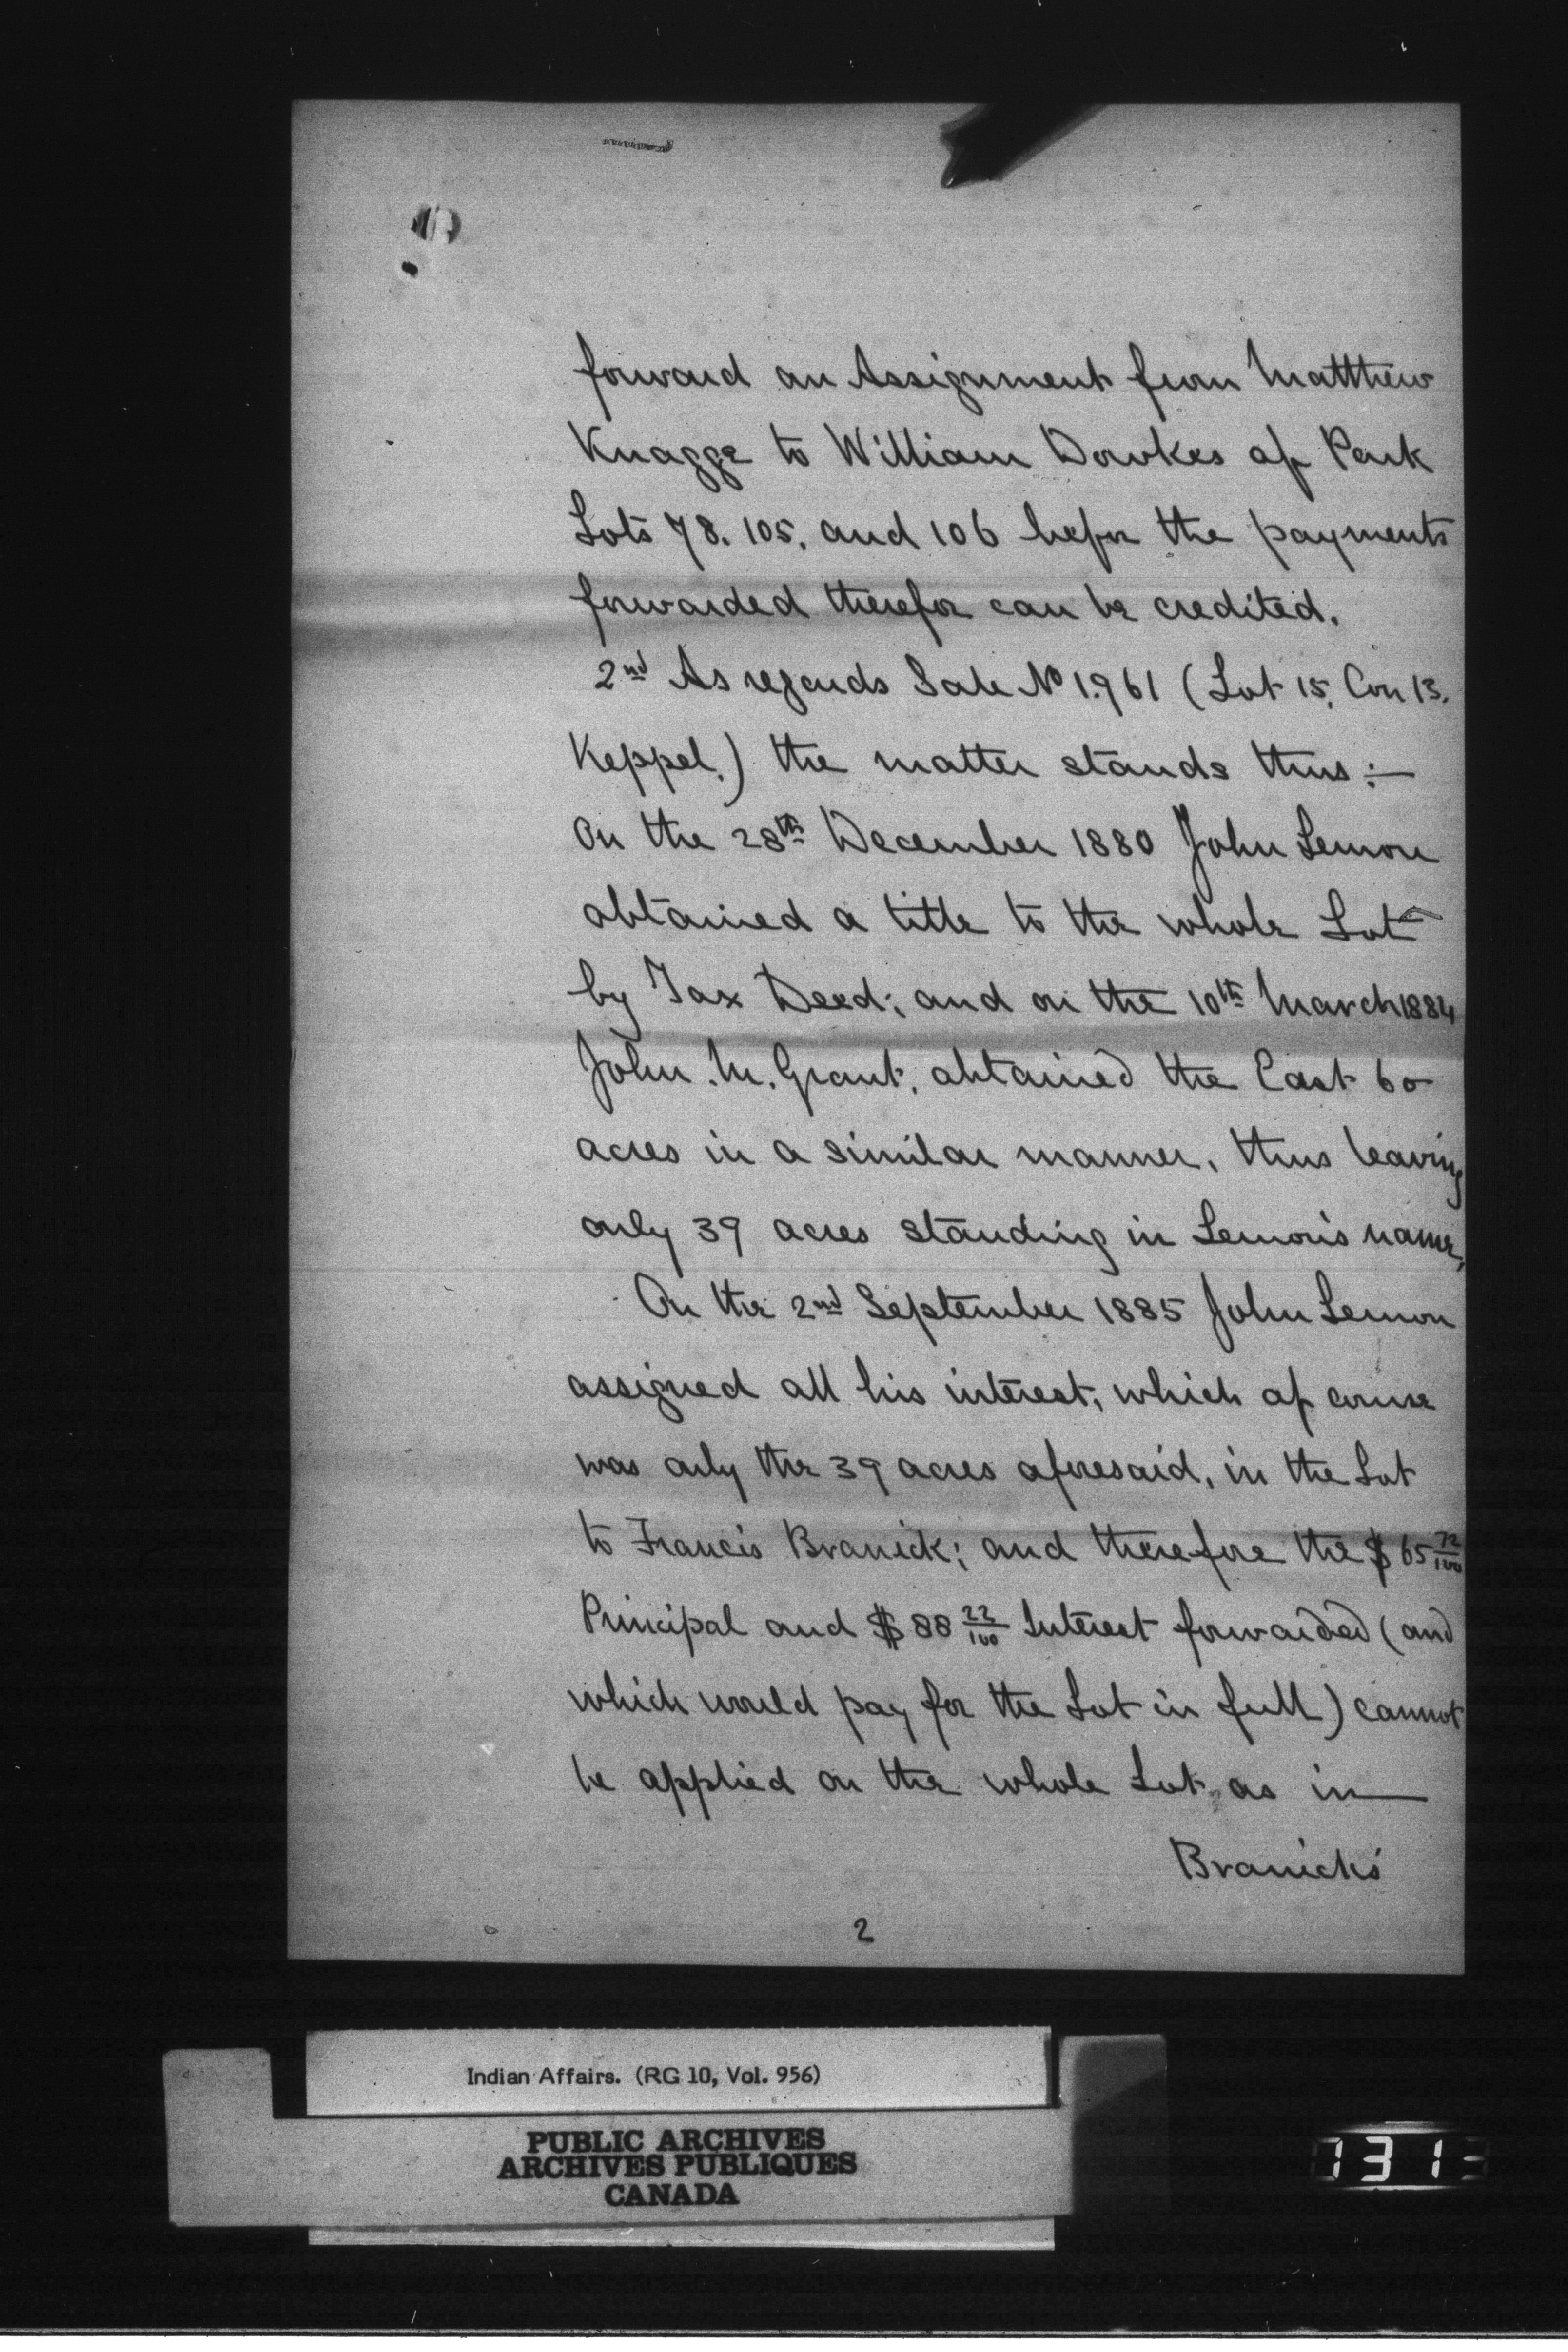 forward an Assignment from Matthew
Knaggs to William Dowkes of Park
Lots 78. 105. and 106 before the payments
forwarded therefor can be credited.
2nd As regards Sale No 1961 (Lot 15, Con 13.
Keppel.) the matter stands thus:—
On the 28th December 1880 John Lemon
obtained a title to the whole Lot
by Tax Deed; and on the 10th March 1884
John. M. Grant. obtained the East 60
acres in a similar manner, thus leaving
only 39 acres standing in Lemon's name.
On the 2nd September 1885 John Lemon
assigned all his interest, which of course
was only the 39 acres aforesaid, in the Lot
to Francis Branick; and therefore the $65 72/100
Principal and $88 22/100 Interest forwarded (and
which would pay for the Lot in full) cannot
be applied on the whole Lot, as in
Branick's
2
Indian Affairs. (RG 10, Vol. 956)
PUBLIC ARCHIVES
ARCHIVES PUBLIQUES
CANADA
1313